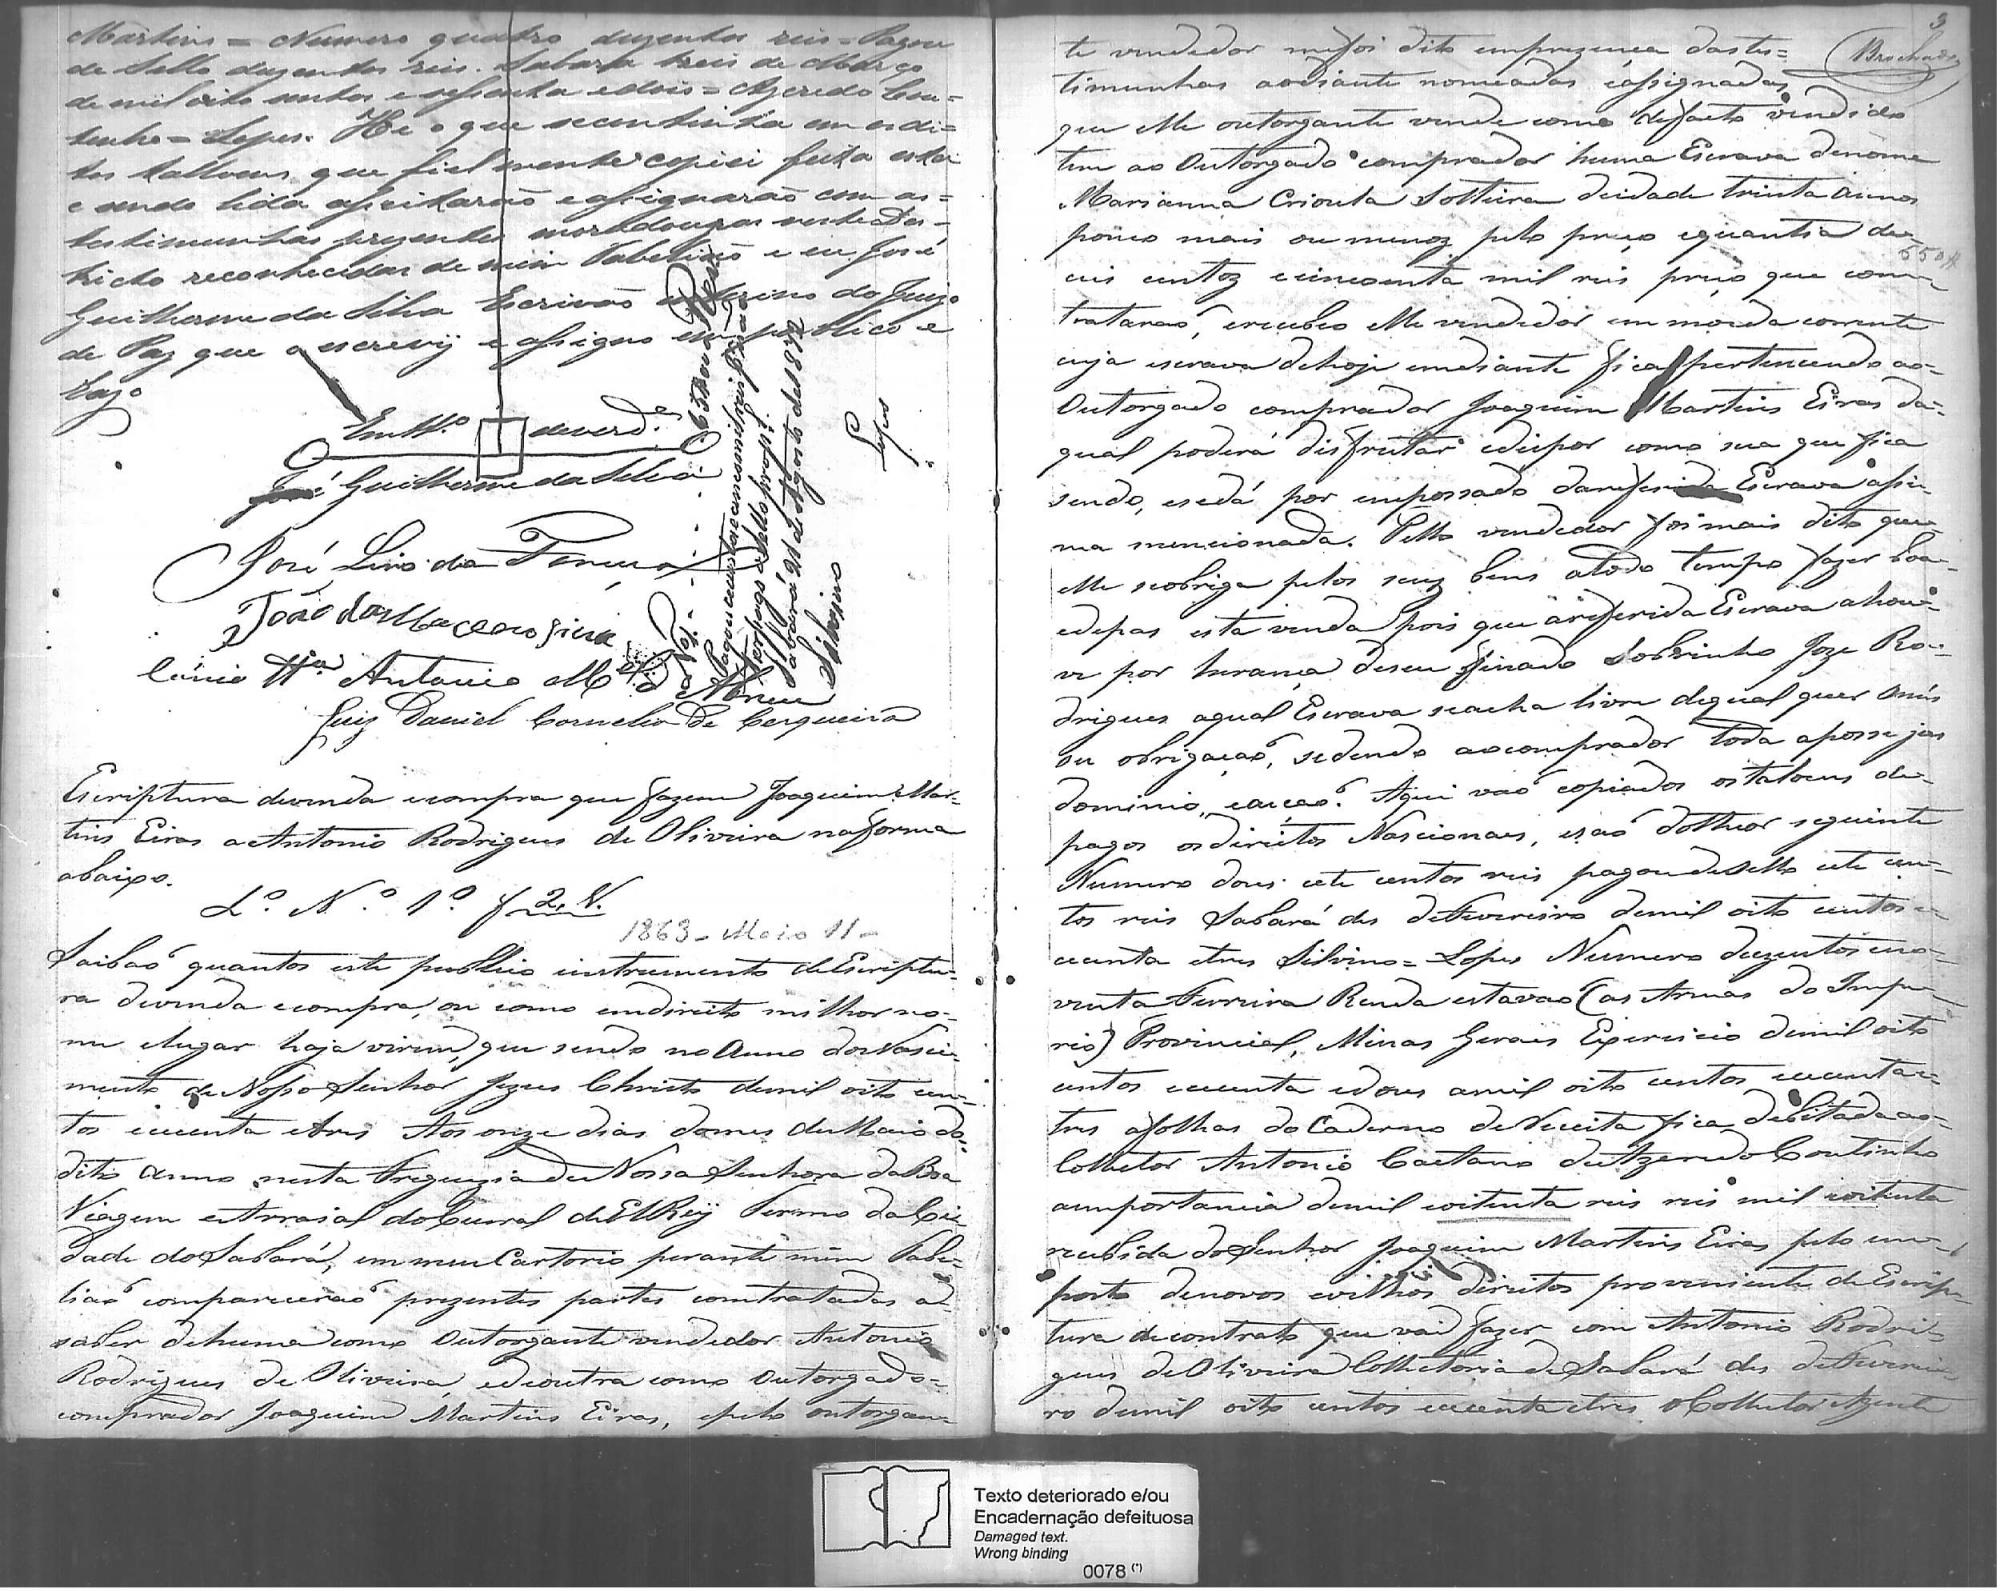 Martins = Numero quatro duzentos reis = Pagou
de Sello duzentos reis. Sabara treis de Março
de mil oito sentos e sessenta e dois = Azeredo Cou=
tinho = Lopes. He o que secontinha em os di=
tos talloens que fielmente copiei feita esta
e sendo lida aseitarão e assignarão com as=
testimunhas prezentes moradouras neste Des=
tricto reconhecidas de mim Tabelião e eu José
Guilherme da Silva Escrivão interino do Juizo
de Paz que o escrevÿ e assigno em publico e
razo
Em tto. de verd.e
José Guilherme da Silva
José Lino da
João da
Antonio
Luiz Daniel Cornelio de Cerqueira
Sabará 21 de Agosto de 1872
Silvino
Lopes
Escriptura devenda ecompra que fazem Joaquim Mar=
tins Eiras a Antonio Rodrigues de Oliveira naforma
abaixo.
L.o N.o 1.o f 2. V.
1863 - Maio 11 -
Saibaõ quantos este publico instrumento de Escriptu=
ra devenda ecompra, ou como emdireito milhor no=
me elugar haja virem, que sendo no Anno do Nasci=
mento de Nosso Senhor Jezus Christo demil oito cen=
tos cecenta etres Aos onze dias domes deMaio do=
dito anno nesta Freguezia de Nossa Senhora da Boa
Viagem e Arraial do Curral de ElReÿ Termo da Ci=
dade do Sabará, em meu Cartorio perante mim Tabe=
liaõ comparecerão prezentes partes comtratadas á
saber dehuma como Outorgante vendedor Antonio
Rodrigues de Oliveira, edeoutra como Outorgado=
comprador Joaquim Martins Eiras, epelo outorgan=
3
Brochado
te vendedor mefoi dito emprezença dastes=
timunhas aodiante nomeadas eassignadas
que elle outorgante vende como defacto vendido
tem ao Outorgado comprador huma Escrava denome
Marianna Crioula Solteira deidade trinta annos
pouco mais ou menoz pelo preço equantia de
650$
ceis centoz ecincoenta mil reis preço que com=
trataraõ, erecebeo elle vendedor em moeda corrente
cuja escrava dehoje emdiante fica pertencendo ao=
Outorgado comprador Joaquim Martins Eiras da=
qual poderá disfrutar edispor como sua que fica
sendo, esedá por empossado dareferida Escrava assi=
ma mencionada. Pello vendedor foi mais dito que
elle seobriga pelos seuz bens atodo tempo fazer boa
edepas esta venda pois que areferida Escrava ahou=
ve por herança deseu finado Sobrinho Joze Ro=
drigues aqual Escrava seacha livre dequal quer onus
ou obrigaçaõ, sedendo aocomprador toda aposse jus
dominio, eaççaõ. Aqui vaõ copiados ostaloens de
pagos osdireitos Nascionaes, esaõ dotheor seguinte
Numero dous cete centos reis pagou deSello cete cen=
tos reis Sabará des deFevereiro demil oito centos e
cecenta etres Silvino = Lopes Numero duzentos eno=
venta Ferreira Renda estavaõ (as Armas do Impe=
rio) Provincial, Minas Geraes Exercicio demil oito
centos cecenta edous amil oito centos cecenta e
tres afolhas do Caderno deReceita fica debitado ao=
Colletor Antonio Caetano deAzeredo Coutinho
aimportancia demil eoitenta reis reis mil eoitenta
recebida doSenhor Joaquim Martins Eiras pelo im=
posto denovos evilhos direitos proveniente de Escrip=
tura decontrato que vai fazer com Antonio Rodri=
gues de Oliveira Colletoria de Sabará des deFeverei=
ro demil oito centos cecenta etres oColletor Agente
Texto deteriorado e/ou
Encadernação defeituosa
Damaged text.
Wrong binding
0078 (*)